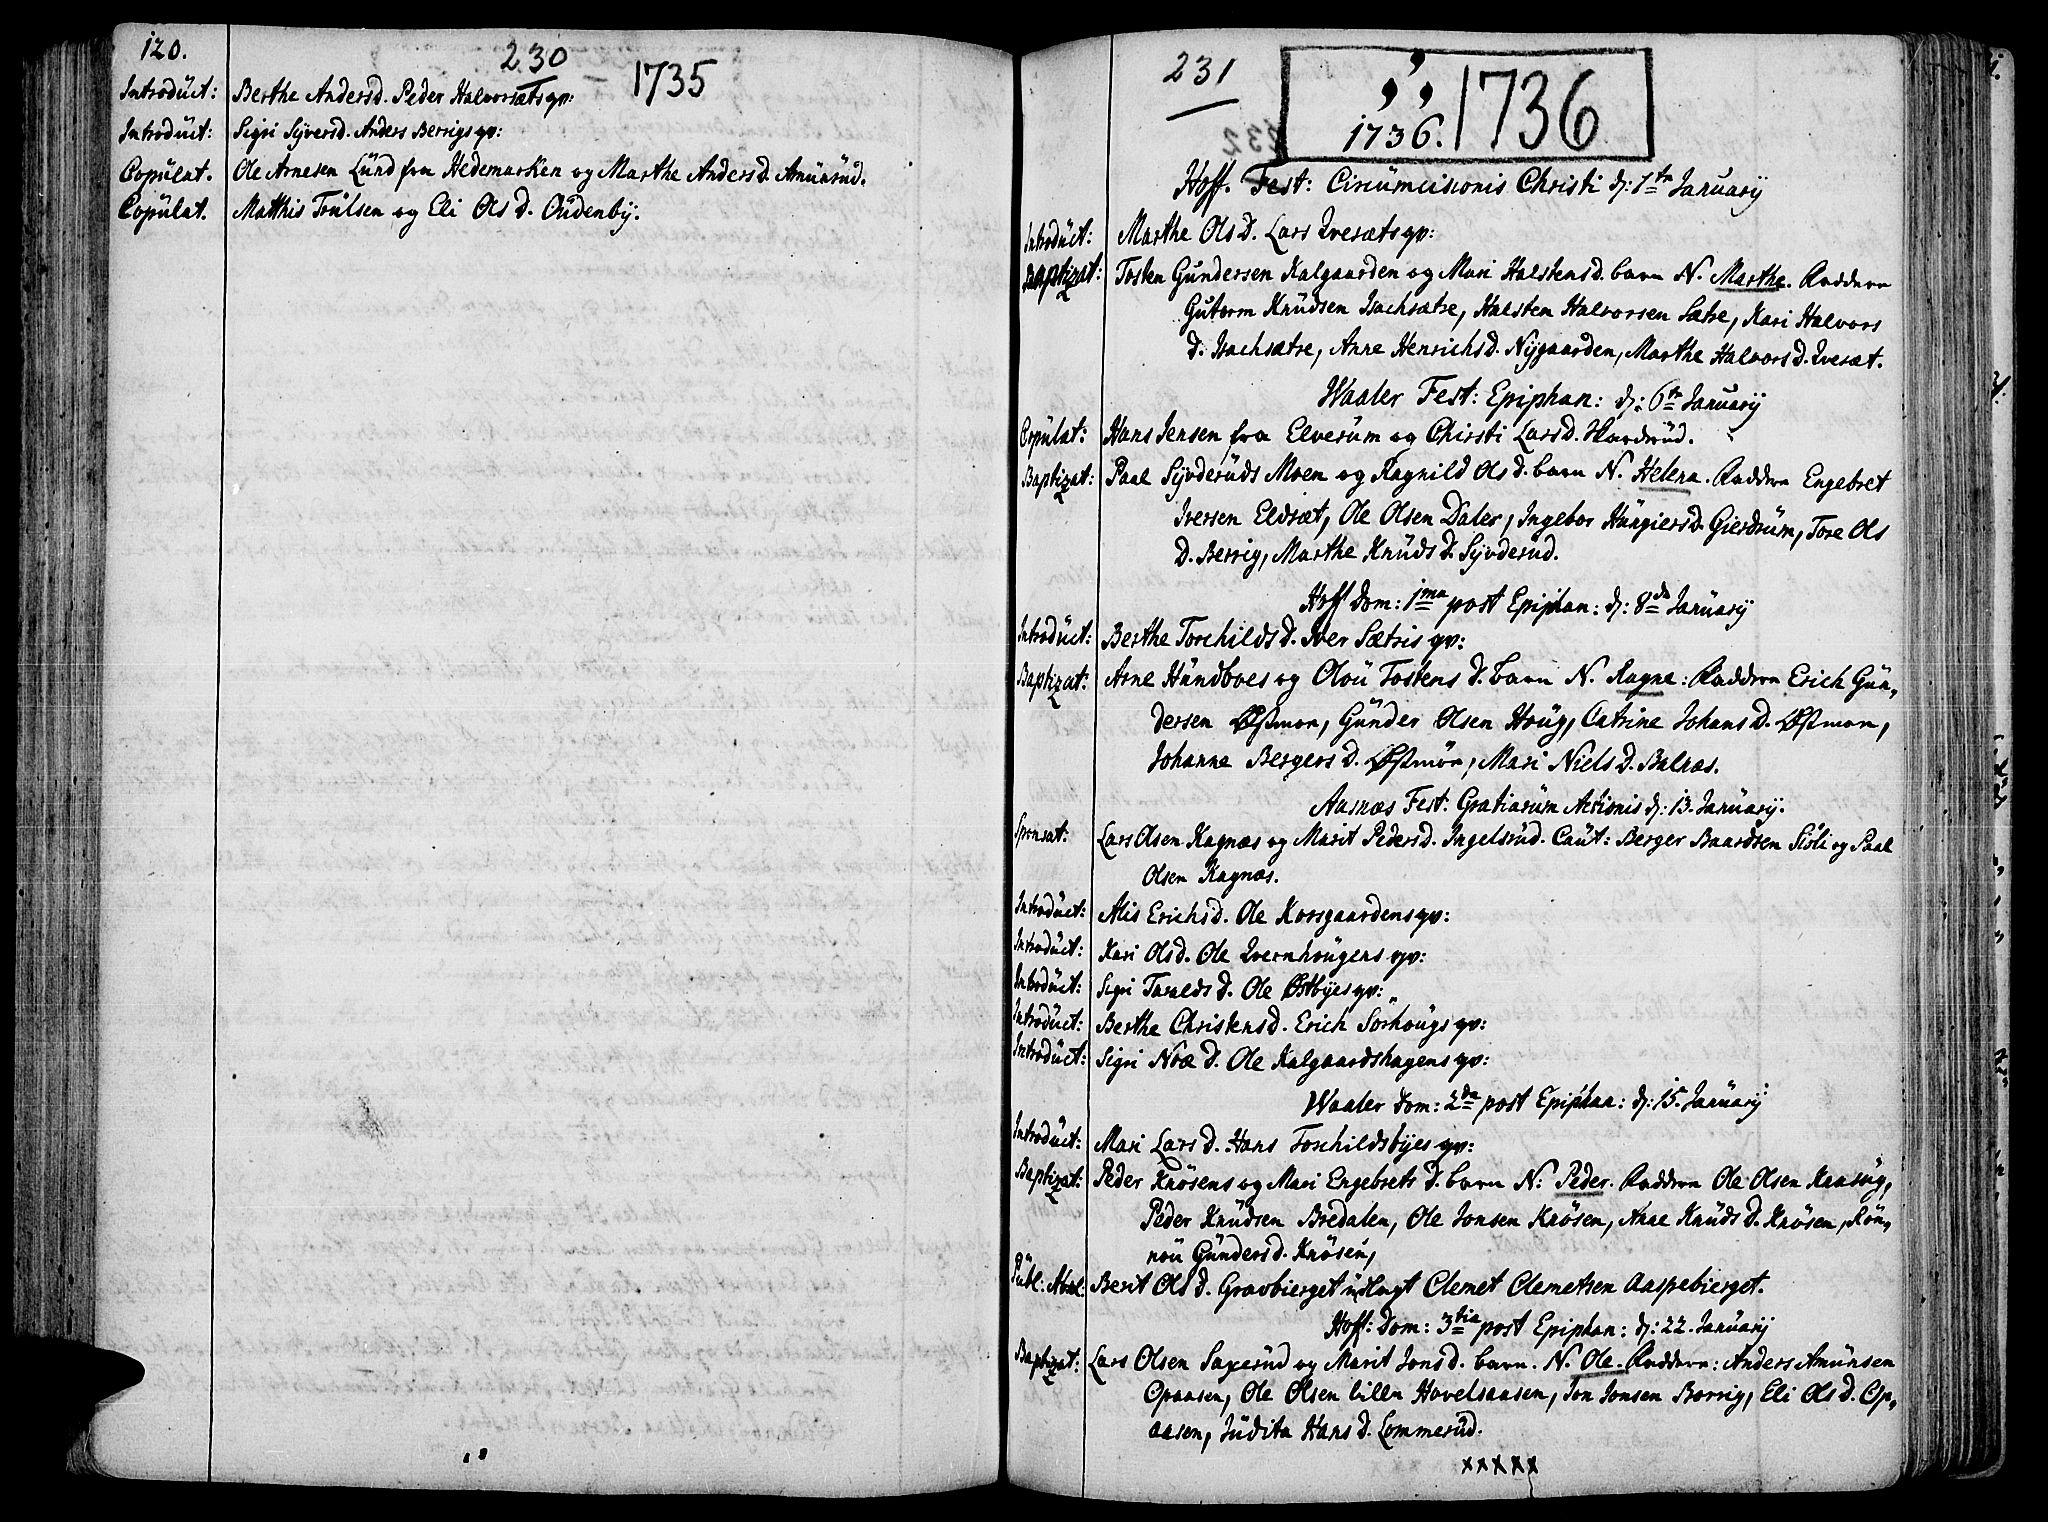 120.
230
1735
Introduct: Berthe Andersd. Peder Halvorsætsqv:
Introduct: Sigri Syversd. Anders Berrigsqv:
Copulat. Ole Arnesen Lund fra Hedemarken og Marthe Anders D. Amunrud.
Copulat. Matthis Troulsen og Eli Ols D. Oudenby.
231
1736. 1736
Hoff. Fest: Circumcisionis Christi d: 1ste Januarij
Introduct: Marthe Ols D. Lars Iversætsqv:
Baptizat: Tosten Gundersen Kalgaarden og Mari Halstensd. barn N. Marthe. Faddere
Gutorm Knudsen Isachsætre, Halsten Halvorsen Sætre, Kari Halvors
D. Isachsætre, Anne Henrichsd. Nygaarden, Marthe Halvors D. Iversæt.
Waaler Fest: Epiphan: d: 6te Januarij
Copulat: Hans Jensen fra Elverum og Chirsti Larsd. Haverud.
Baptizat: Paal Syvderuds Moen og Ragnild Ols D. barn N. Helena. Faddere Engebret
Iversen Eldsæt, Ole Olsen Daler, Ingebor Hangiersd. Gierdrum, Tore Ols
D. Berrig, Marthe Knuds D. Syvderud.
Hoff Dom: 1ma post Epiphan: d: 8de Januarij
Introduct: Berthe Torchilds D. Iver Sætris qv:
Baptizat: Arne Hundboes og Olou Tostens D. barn N. Ragne: Faddere Erich Gun,
dersen Østmoe, Gunder Olsen Houg, Catrine Johans D. Østmoe,
Johanne Bergers D. Østmoe, Mari Niels D. Balnæs.
Aasnæs Fest: Gratiarum Actionis d: 13. Januarij.
Sponsat: Lars Olsen Kagnæs og Marit Pedersd. Ingelsrud. Caut: Berger Baardsen Sisli og Paal
Olsen Kagnæs.
Introduct: Alis Erichsd. Ole Korsgaardensqv:
Introduct: Kari Olsd. Ole Qvernhougens qv:
Introduct: Sigri Taralds D. Ole Østbyesqv:
Introduct: Berthe Christensd. Erich Sorhougs qv:
Introduct: Sigri Noæ D. Ole Kalgaardshagens qv:
Waaler Dom: 2da post Epiphan: d: 15. Januarij
Introduct: Mari Lars D. Hans Torchildsbyes qv:
Baptizat: Peder Knosens og Mari Engebrets D. barn N: Peder. Faddere Ole Olsen Kaasug,
Peder Knudsen Bredalen, Ole Jonsen Knosen, Anne Knuds D. Knosen, Rón,
nou Gundersd. Knosen,
Publ: Absol: Berit Ols D. Gravbierget udlagt Clemet Clemetsen Aaspebierget.
Hoff: Dom: 3tia post Epiphan: d: 22. Januarij
Baptizat: Lars Olsen Saxerud og Marit Jonsd. barn. N. Ole. Faddere: Anders Amunsen
Opaasen, Ole Olsen lille Hovelsaasen, Jon Jonsen Borrig, Eli Ols D. Op,
aasen, Judita Hans D. Lommerud.
xxxxx